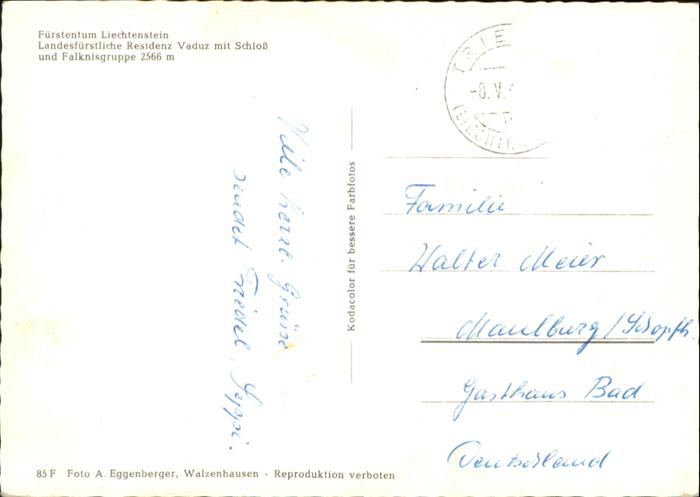 Fürstentum Liechtenstein
Landesfürstliche Residenz Vaduz mit Schloß
und Falknisgruppe 2566 m
TRIE
-8. V.
(LIECHTE
Viele herzl. Grüsse
sendet Friedel, Seppi.
Kodacolor für bessere Farbfotos
Familie
Walter Meier
Maulburg/Schopfh.
Gasthaus Bad
Deutschland
85 F Foto A. Eggenberger, Walzenhausen · Reproduktion verboten